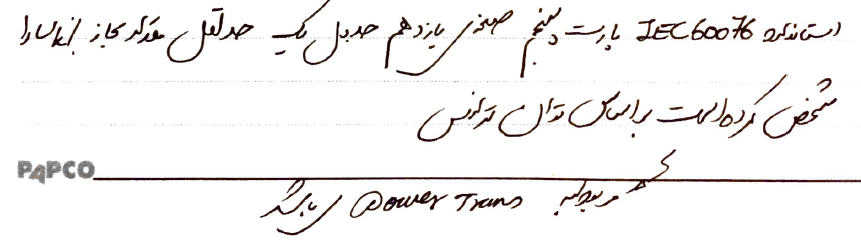 استاندارد IEC60076 پارت پنجم صفحه‌ی یازدهم جدول یک حداقل مقدار مجاز امپدانس را
مشخص کرده است براساس توان ترانس
PAPCO
مربوط به Power Trans می باشد